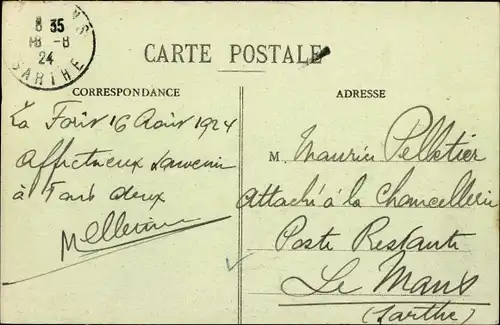 8 35
18 -8
24
SARTHE
CARTE POSTALE
CORRESPONDANCE
La 16 Août 1924
Affectueux souvenir
à Tous deux
ADRESSE
M. Maurice Pelletier
Attaché à la Chancellerie
Poste Restante
Le Mans
(Sarthe)